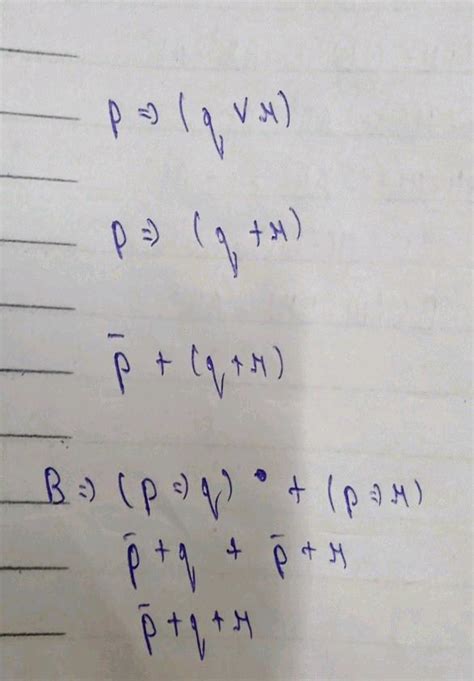 p ⇒ (q ∨ r)
p ⇒ (q + r)
p̄ + (q + r)
B ⇒ (p ⇒ q) + (p ⇒ r)
p̄ + q + p̄ + r
p̄ + q + r